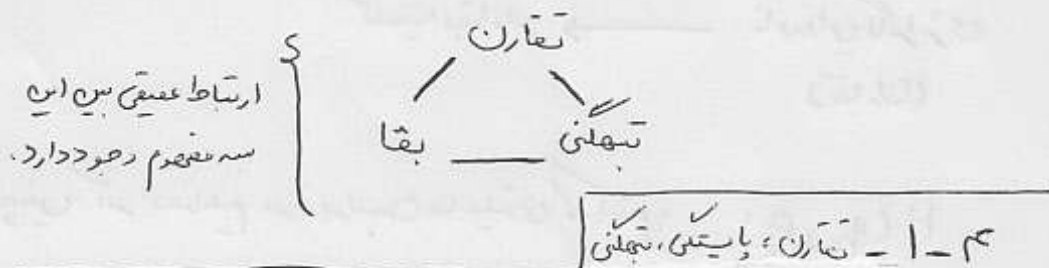 تقارن
بقا تبهگنی
ارتباط عمیقی بین این
سه مفهوم وجود دارد.
۴-۱- تقارن؛ پایستگی، تبهگنی